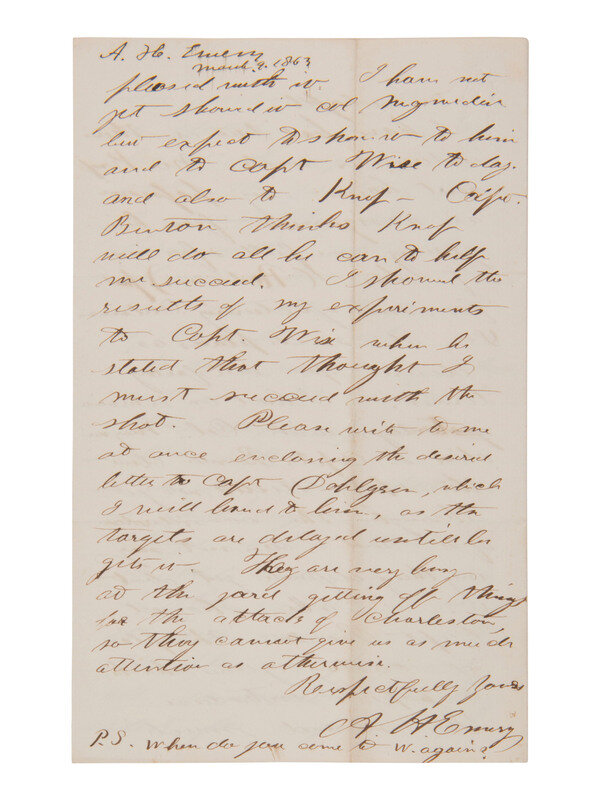 A. H. Emery
March 9. 1863
pleased with it. I have not
yet showed it Col
but expect to show it to him
and to Capt Wise to day.
and also to Knap – Capt.
Benton thinks Knap
will do all he can to help
me succeed. I showed the
results of my experiments
to Capt. Wise when he
stated that thought I
must succeed with the
shot. Please write to me
at once enclosing the desired
letter to Capt Dahlgren, which
I will hand to him, as the
targets are delayed until he
gets it. They are very busy
at the yard getting off things
for the attack of Charleston,
so they cannot give us as much
attention as otherwise.
Respectfully Yours
A. H Emery
P.S. When do you come to W. again?